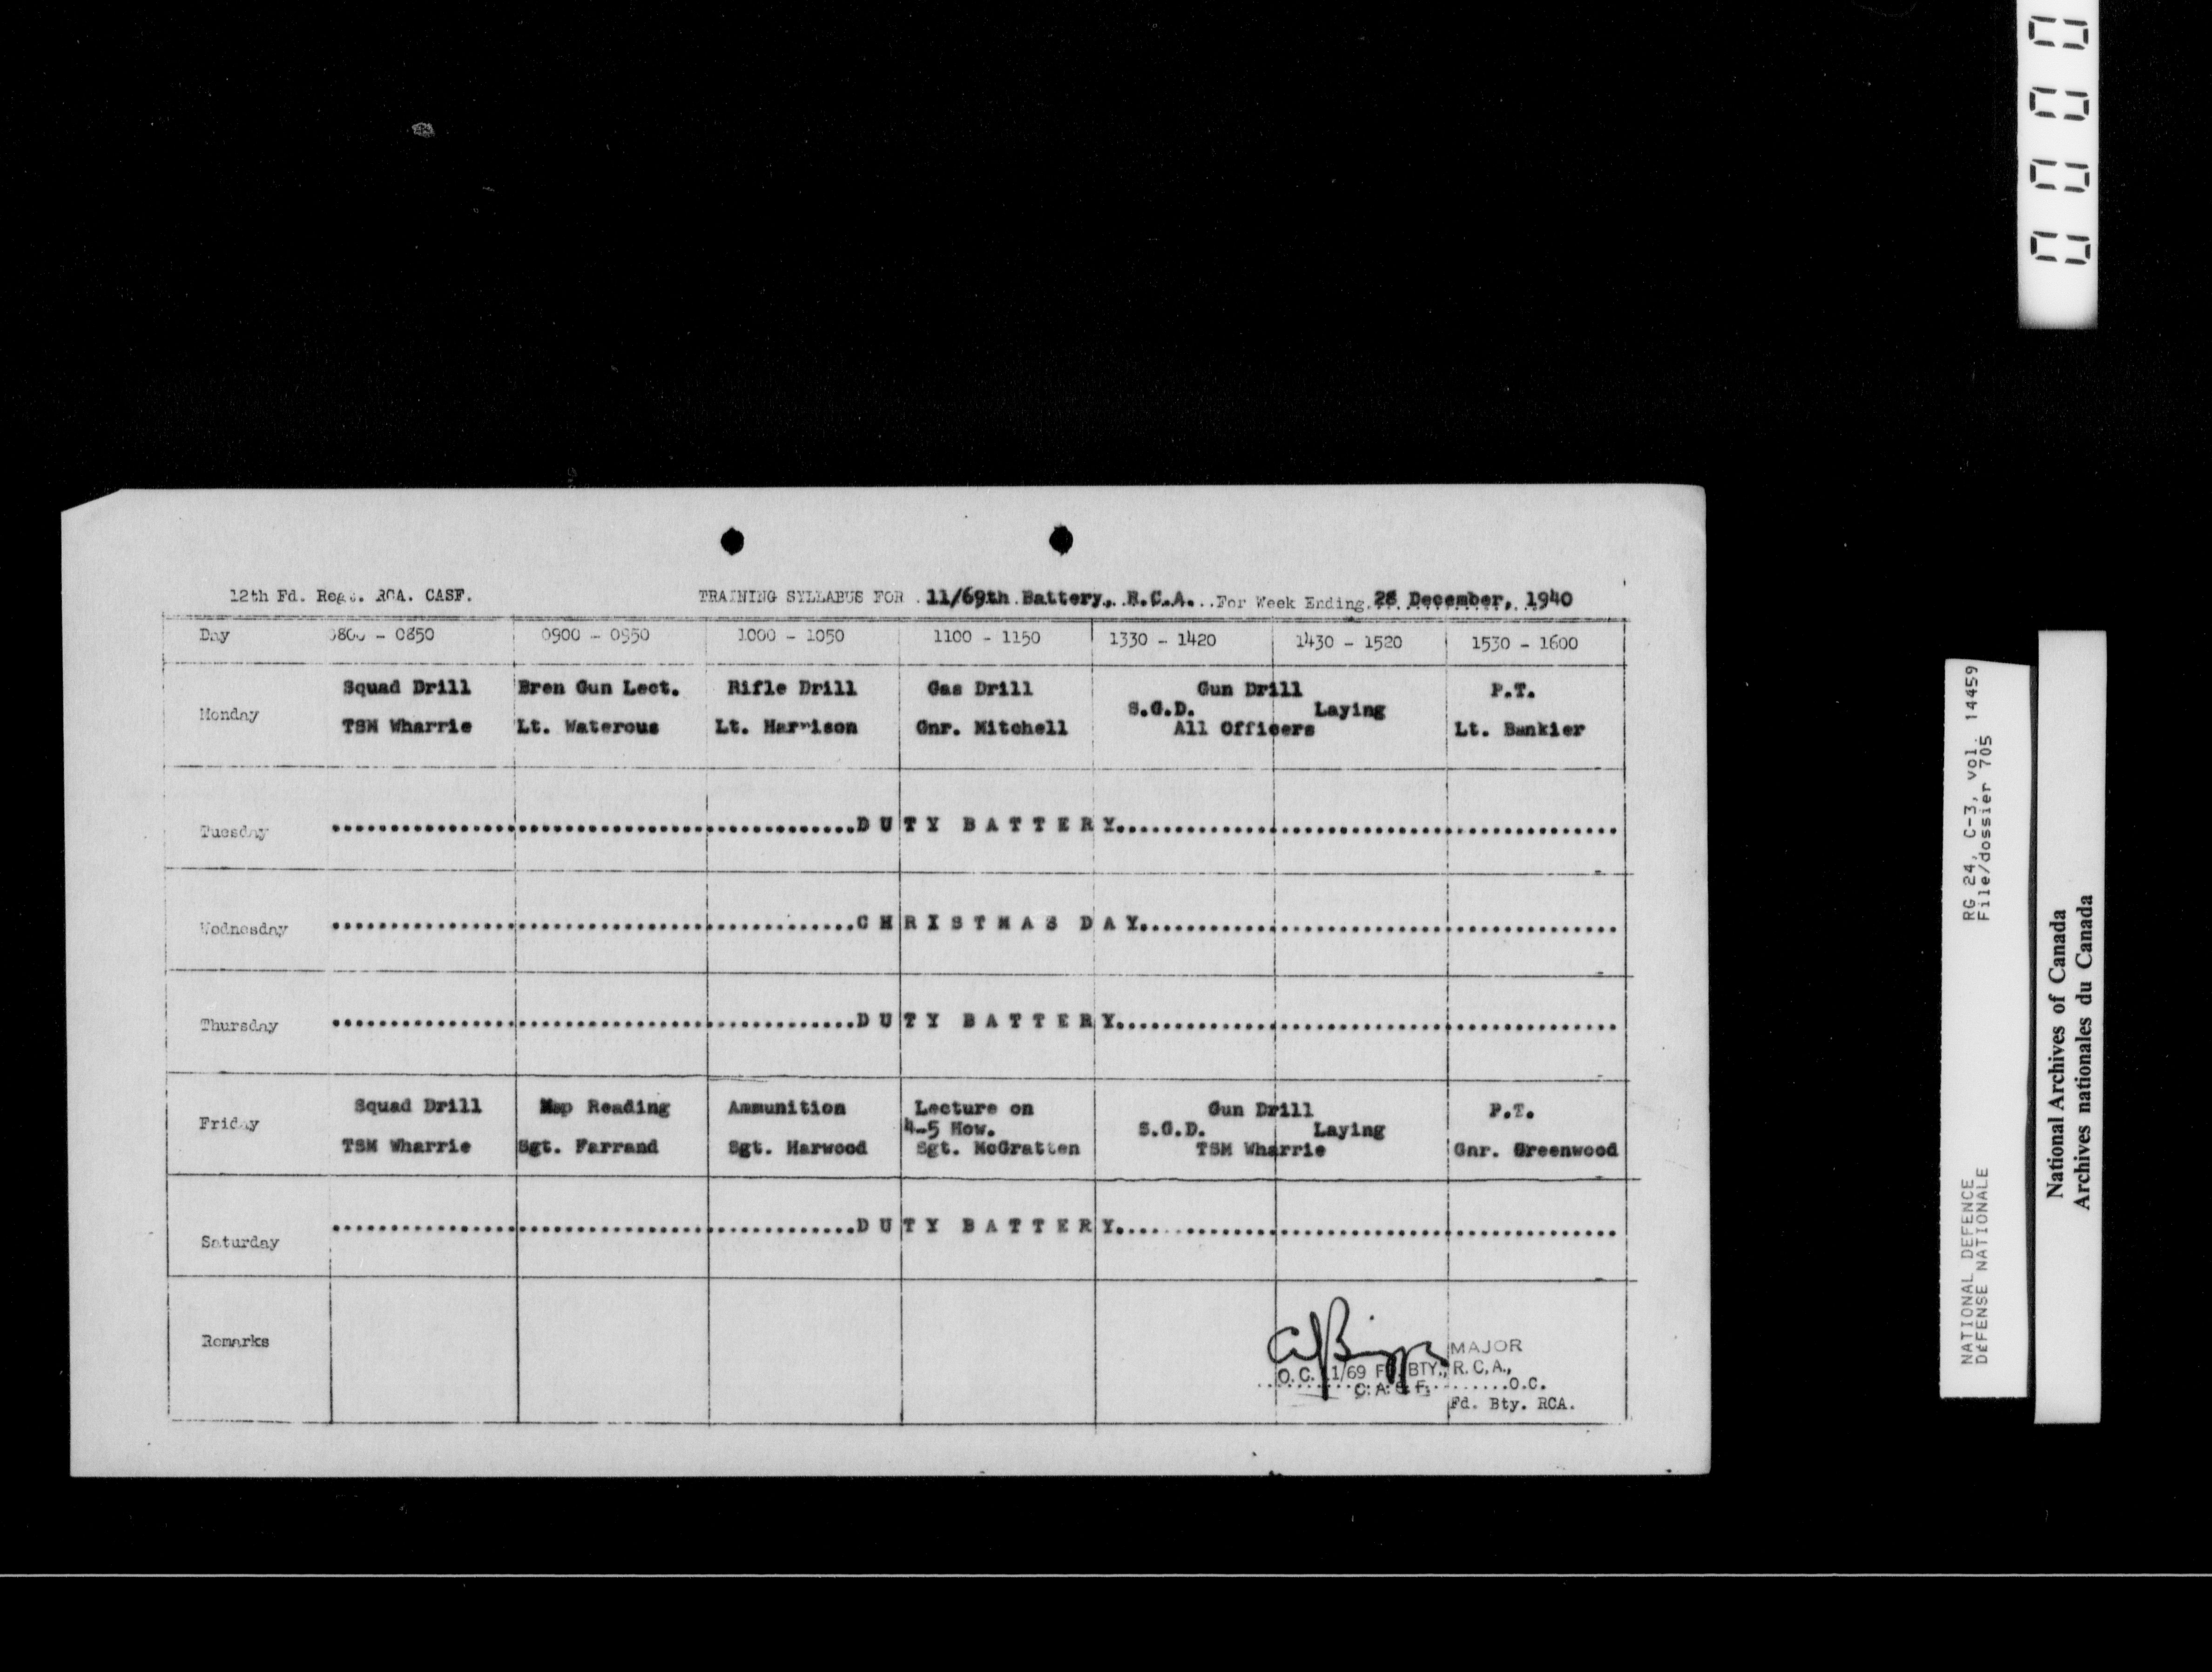 0000
12th Fd. Regt. RCA. CASF. TRAINING SYLLABUS FOR .11/69th.Battery,.R.C.A...For Week Ending.28 December, 1940
Day 0800 - 0850 0900 - 0950 1000 - 1050 1100 - 1150 1330 - 1420 1430 - 1520 1530 - 1600
Squad Drill Bren Gun Lect. Rifle Drill Gas Drill Gun Drill P.T.
Monday S.G.D. Laying
TSM Wharrie Lt. Waterous Lt. Harrison Gnr. Mitchell All Officers Lt. Bankier
Tuesday DUTY BATTERY
Wednesday CHRISTMAS DAY
Thursday DUTY BATTERY
Squad Drill Map Reading Ammunition Lecture on Gun Drill P.T.
Friday 4-5 How. S.G.D. Laying
TSM Wharrie Sgt. Farrand Sgt. Harwood Sgt. McGratten TSM Wharrie Gnr. Greenwood
Saturday DUTY BATTERY
Remarks
MAJOR
O.C. 11/69 FD. BTY., R.C.A.,
C.A.S.F. O.C.
Fd. Bty. RCA.
RG 24, C-3, vol. 14459
File/dossier 705
NATIONAL DEFENCE
DÉFENSE NATIONALE
National Archives of Canada
Archives nationales du Canada